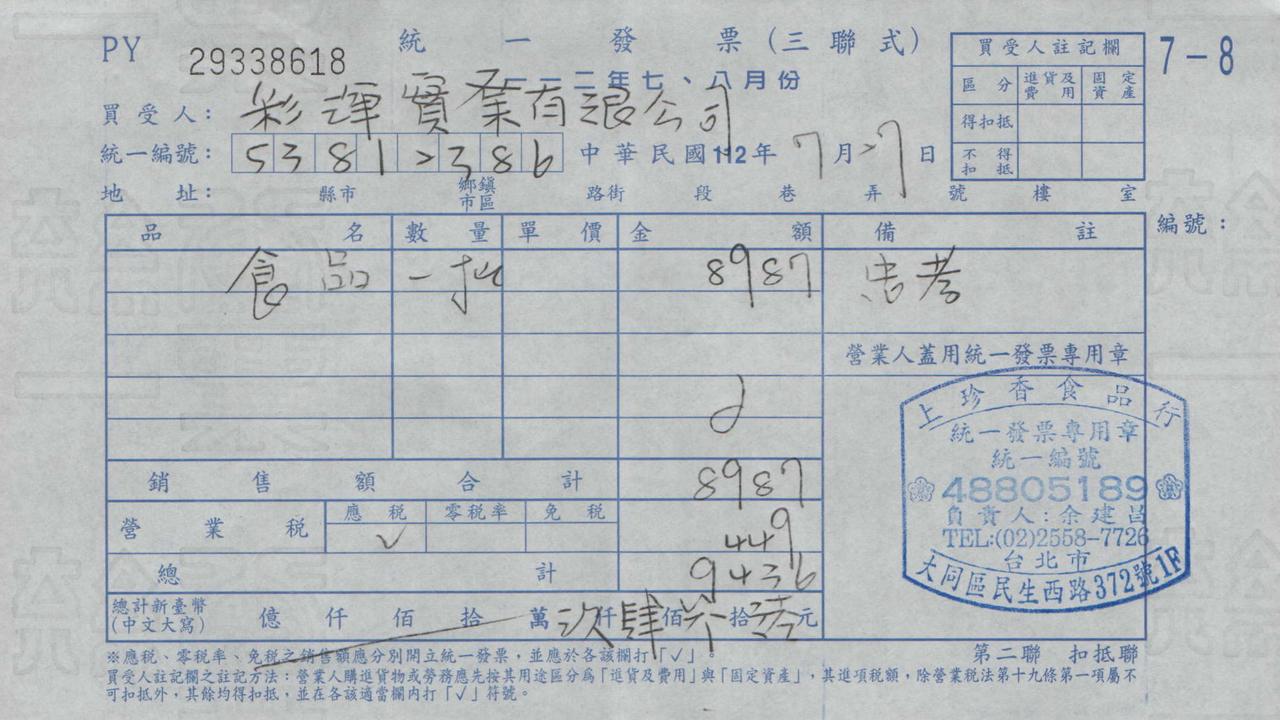 PY 29338618
統一發票(三聯式)
一一二年七、八月份
7-8
買受人註記欄
區分 進貨及費用 固定資產
得扣抵
不得扣抵
買受人: 彩輝實業有限公司
統一編號: 53812386 中華民國112年7月27日
地址: 縣市 鄉鎮市區 路街 段 巷 弄 號 樓 室
編號:
品名 數量 單價 金額 備註
食品 一批 8987
營業人蓋用統一發票專用章
銷售額合計 8987
營業稅 應稅 零稅率 免稅
✓ 449
總計 9436
總計新臺幣(中文大寫) 億 仟 佰 拾 萬 玖仟肆佰 拾 元
上珍香食品行
統一發票專用章
統一編號
48805189
負責人:余建昌
TEL:(02)2558-7726
台北市
大同區民生西路372號1F
※應稅、零稅率、免稅之銷售額應分別開立統一發票,並應於各該欄打「✓」。
第二聯 扣抵聯
買受人註記欄之註記方法:營業人購進貨物或勞務應先按其用途區分為「進貨及費用」與「固定資產」,其進項稅額,除營業稅法第十九條第一項屬不
可扣抵外,其餘均得扣抵,並在各該適當欄內打「✓」符號。